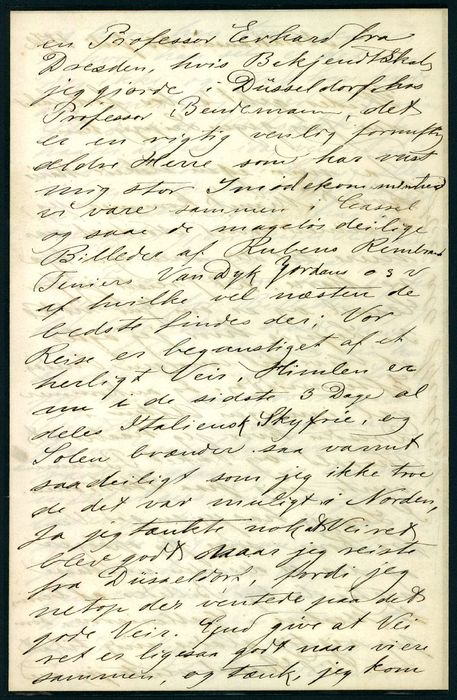 en Professor Eerhard fra
Dresden, hvis Bekjendtskab
jeg gjorde i Düsseldorf hos
Professor Bendemann, det
er en rigtig venlig fornuftig
ældre Herre som har vist
mig stor Imødekommenhed
vi vare sammen i Cassel
og saae de mageløs deilige
Billeder af Rubens Rembrand
Teniers Van Dyk Jordans o s v
af hvilke vel næsten de
bedste findes der; Vor
Reise er begunstiget af et
herligt Veir, Himlen er
nu i de sidste 3 Dage al
deles Italiensk Skyfrie, og
Solen brænder saa varmt
saa deiligt som jeg ikke tro
de det var muligt i Norden,
Ja jeg tænkte nok at Veiret
blev godt naar jeg reiste
fra Düsseldorf, fordi jeg
netop der ventede paa det
gode Veir. Gud give at Vei
ret er ligesaa godt naar vi ere
sammen, og tænk, jeg kom